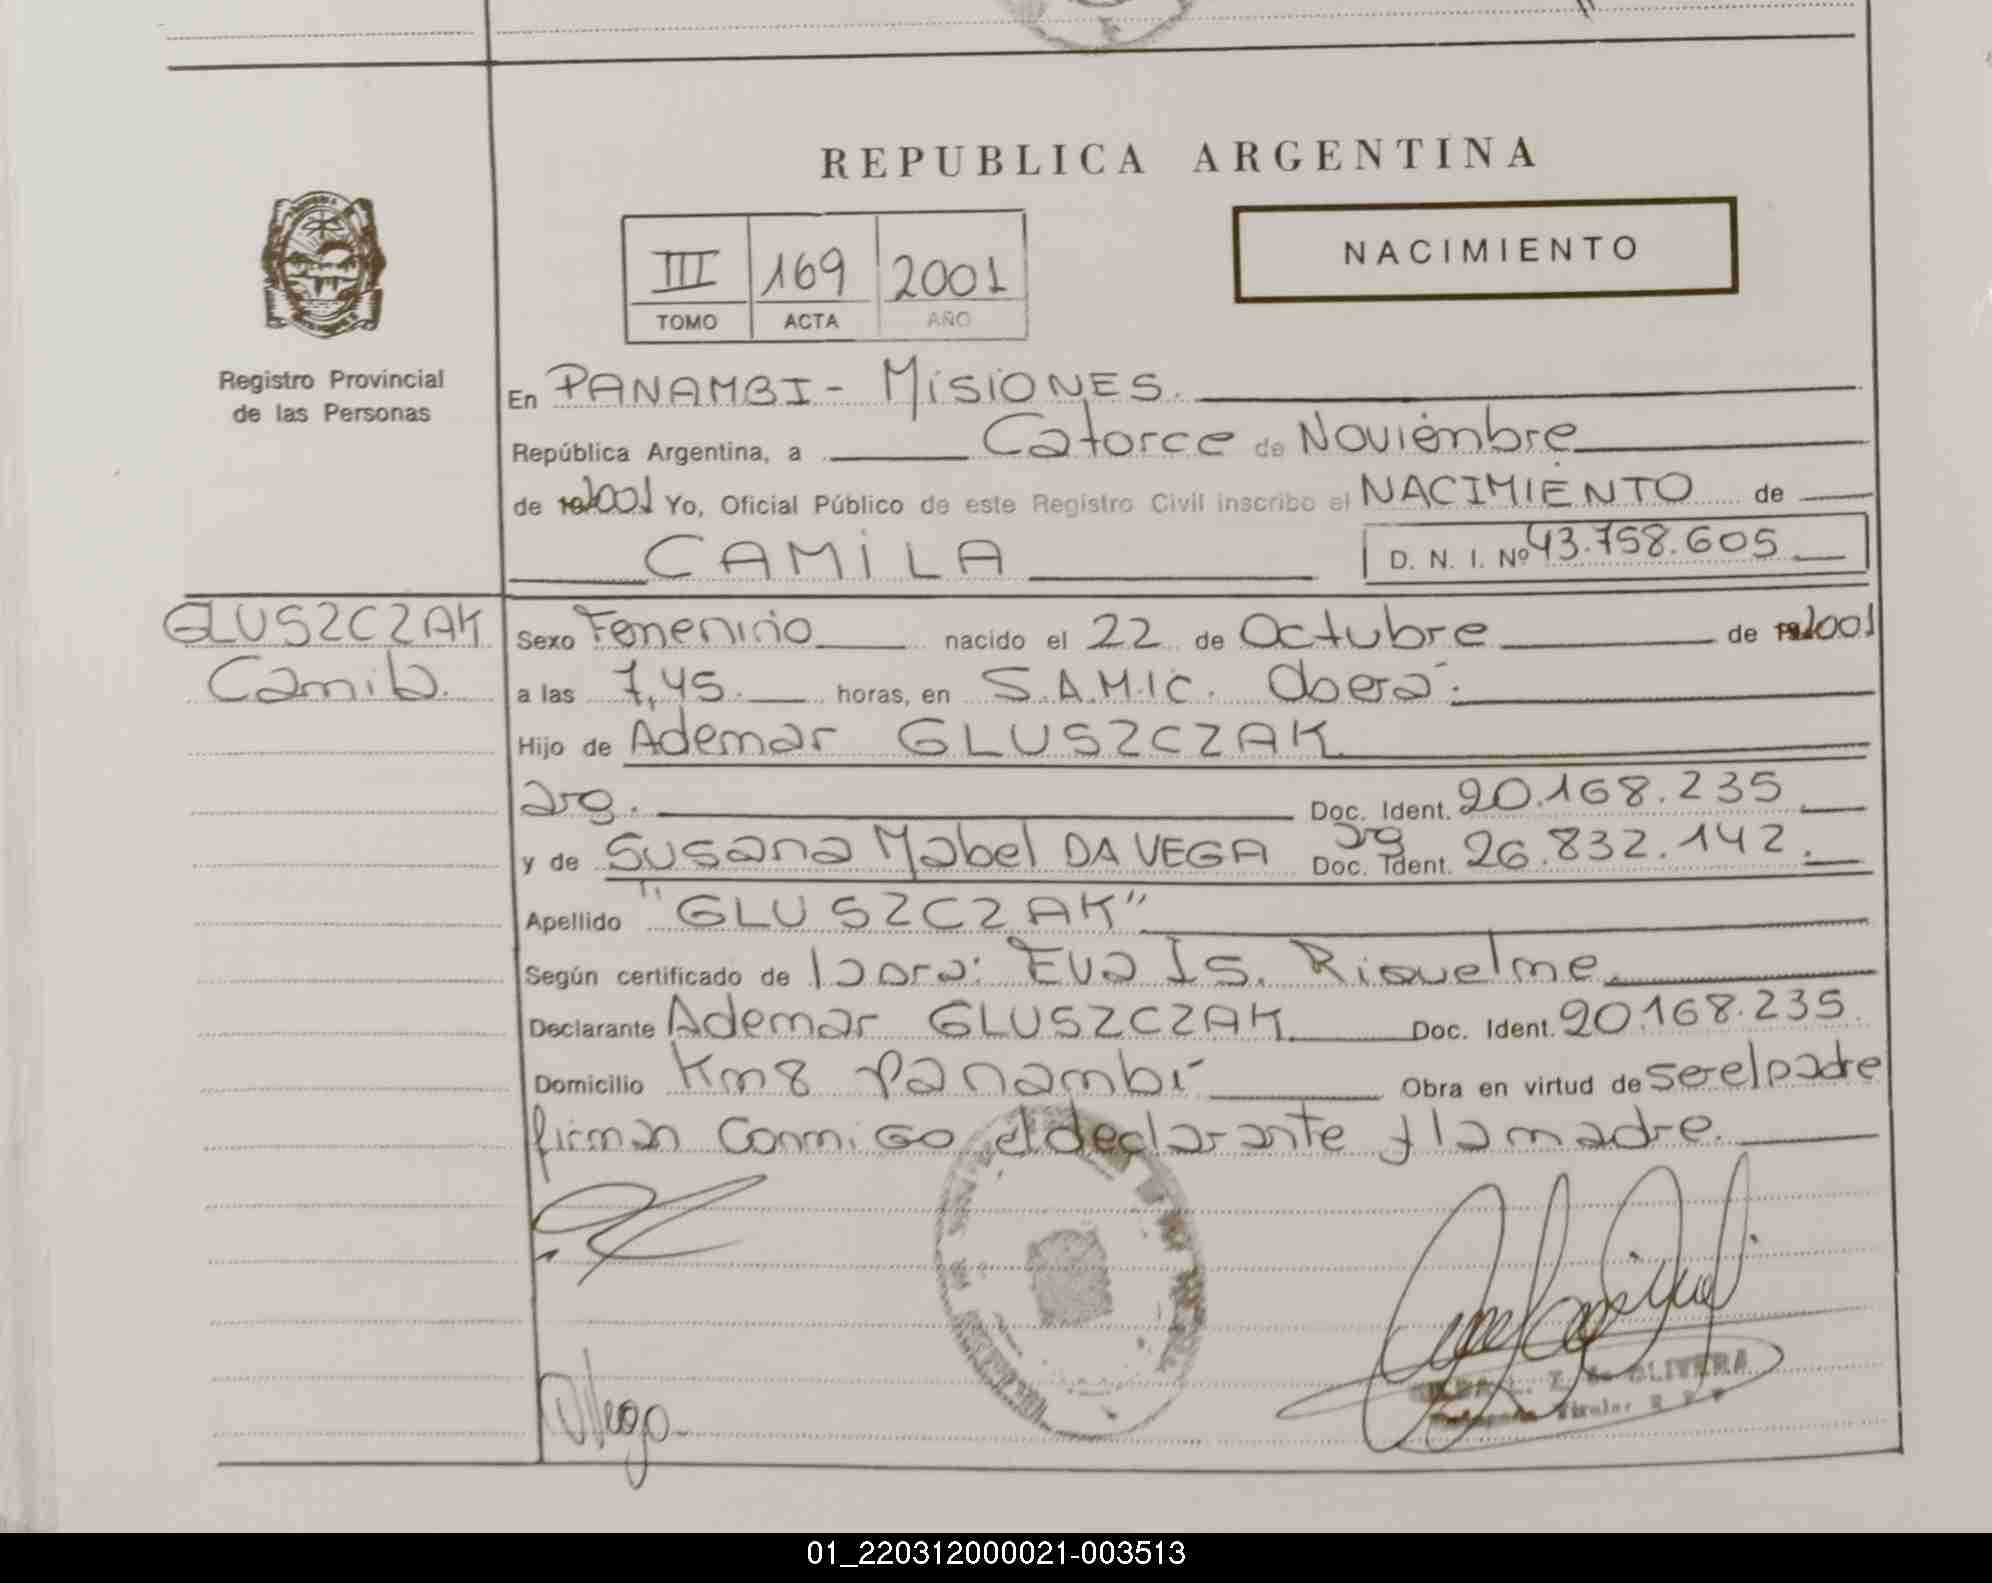 REPUBLICA ARGENTINA
NACIMIENTO
III 169 2001
TOMO ACTA AÑO
Registro Provincial
de las Personas
En PANAMBI - MISIONES.
República Argentina, a Catorce de Noviembre
de 2001 Yo, Oficial Público de este Registro Civil inscribo el NACIMIENTO de
CAMILA D. N. I. Nº 43.758.605
GLUSZCZAK
Camila.
Sexo Femenino nacido el 22 de Octubre de 2001
a las 7,45. horas, en S.A.M.I.C. Oberá.
Hijo de Ademar GLUSZCZAK
arg. Doc. Ident. 20.168.235
y de Susana Mabel DA VEGA arg Doc. Ident. 26.832.142.
Apellido "GLUSZCZAK"
Según certificado de la ora: Eva Is. Riquelme.
Declarante Ademar GLUSZCZAK Doc. Ident. 20.168.235.
Domicilio Km 8 Panambí Obra en virtud de ser el padre
firman conmigo el declarante y la madre.
L. Z. de OLIVERA
Titular R P P
01_220312000021-003513